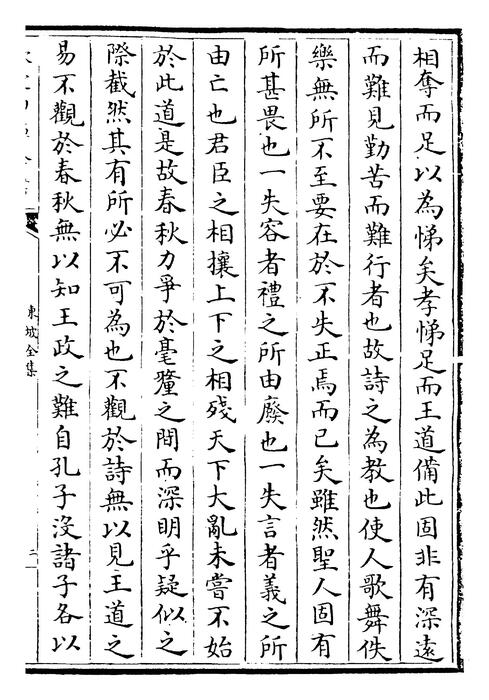 相奪而足以為悌矣孝悌足而王道備此固非有深遠
而難見勤苦而難行者也故詩之為教也使人歌舞佚
樂無所不至要在於不失正焉而已矣雖然聖人固有
所甚畏也一失容者禮之所由廢也一失言者義之所
由亡也君臣之相攘上下之相殘天下大亂未嘗不始
於此道是故春秋力爭於毫釐之間而深明乎疑似之
際截然其有所必不可為也不觀於詩無以見王道之
易不觀於春秋無以知王政之難自孔子沒諸子各以
東坡全集
二